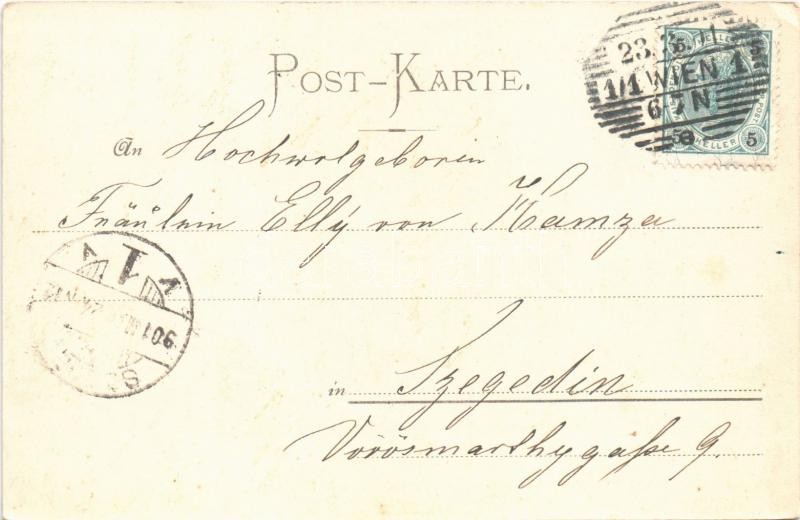 POST-KARTE.
23.3.
1/1 WIEN 1
6 7 N
e
5 5
5 HELLER 5
An Hochwolgeboren
Fräulein Elly von Kamza
in Szegedin
Vörösmarthygaße 9.
901